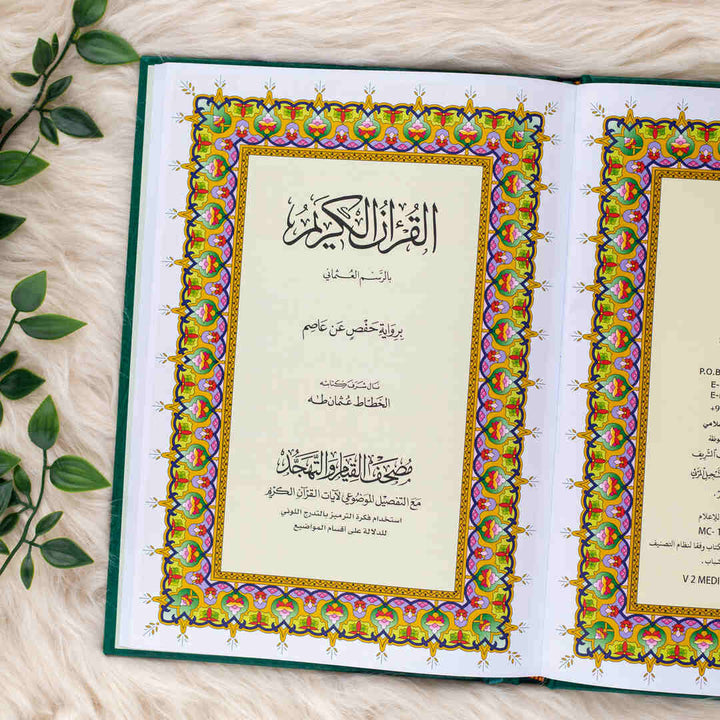 القُرْآنُ الكَرِيمُ
بالرَّسْمِ العُثْمَانِي
بِروَايَةِ حَفْصٍ عَن عَاصِم
نَالَ شَرَفَ كِتَابَتِهِ
الخَطَّاط عُثْمَان طه
مُصْحَفُ القِيَامِ وَالتَّهَجُّدِ
مَعَ التَفصِيْلِ المَوضُوعِي لآيَاتِ القُرْآنِ الكَرِيْمِ
استخدام فكرة الترميز بالتدرج اللوني
للدلالة على أقسام المواضيع
P.O.B
E-
E-
+9
لامي
وظة
الشريف
للإعلام
MC- 1
كتاب وفقا لنظام التصنيف
V 2 MEDI